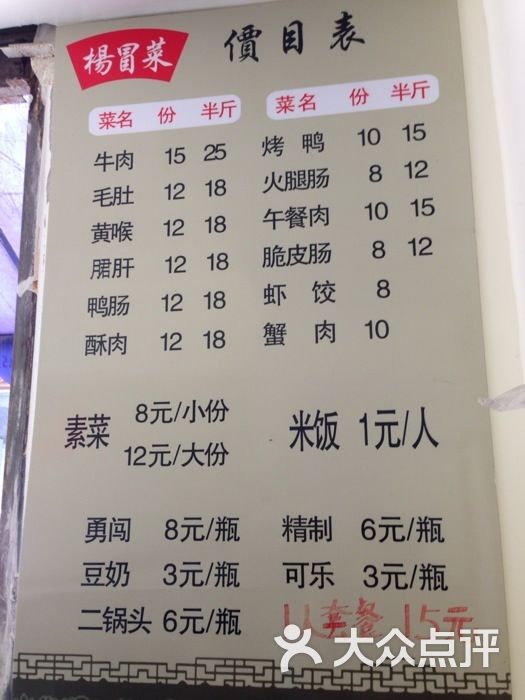 楊冒菜
價目表
菜名 份 半斤
牛肉 15 25
毛肚 12 18
黄喉 12 18
䐚肝 12 18
鸭肠 12 18
酥肉 12 18
菜名 份 半斤
烤鸭 10 15
火腿肠 8 12
午餐肉 10 15
脆皮肠 8 12
虾饺 8
蟹肉 10
素菜 8元/小份
12元/大份
米饭 1元/人
勇闯 8元/瓶
豆奶 3元/瓶
二锅头 6元/瓶
精制 6元/瓶
可乐 3元/瓶
1人套餐 15元
大众点评